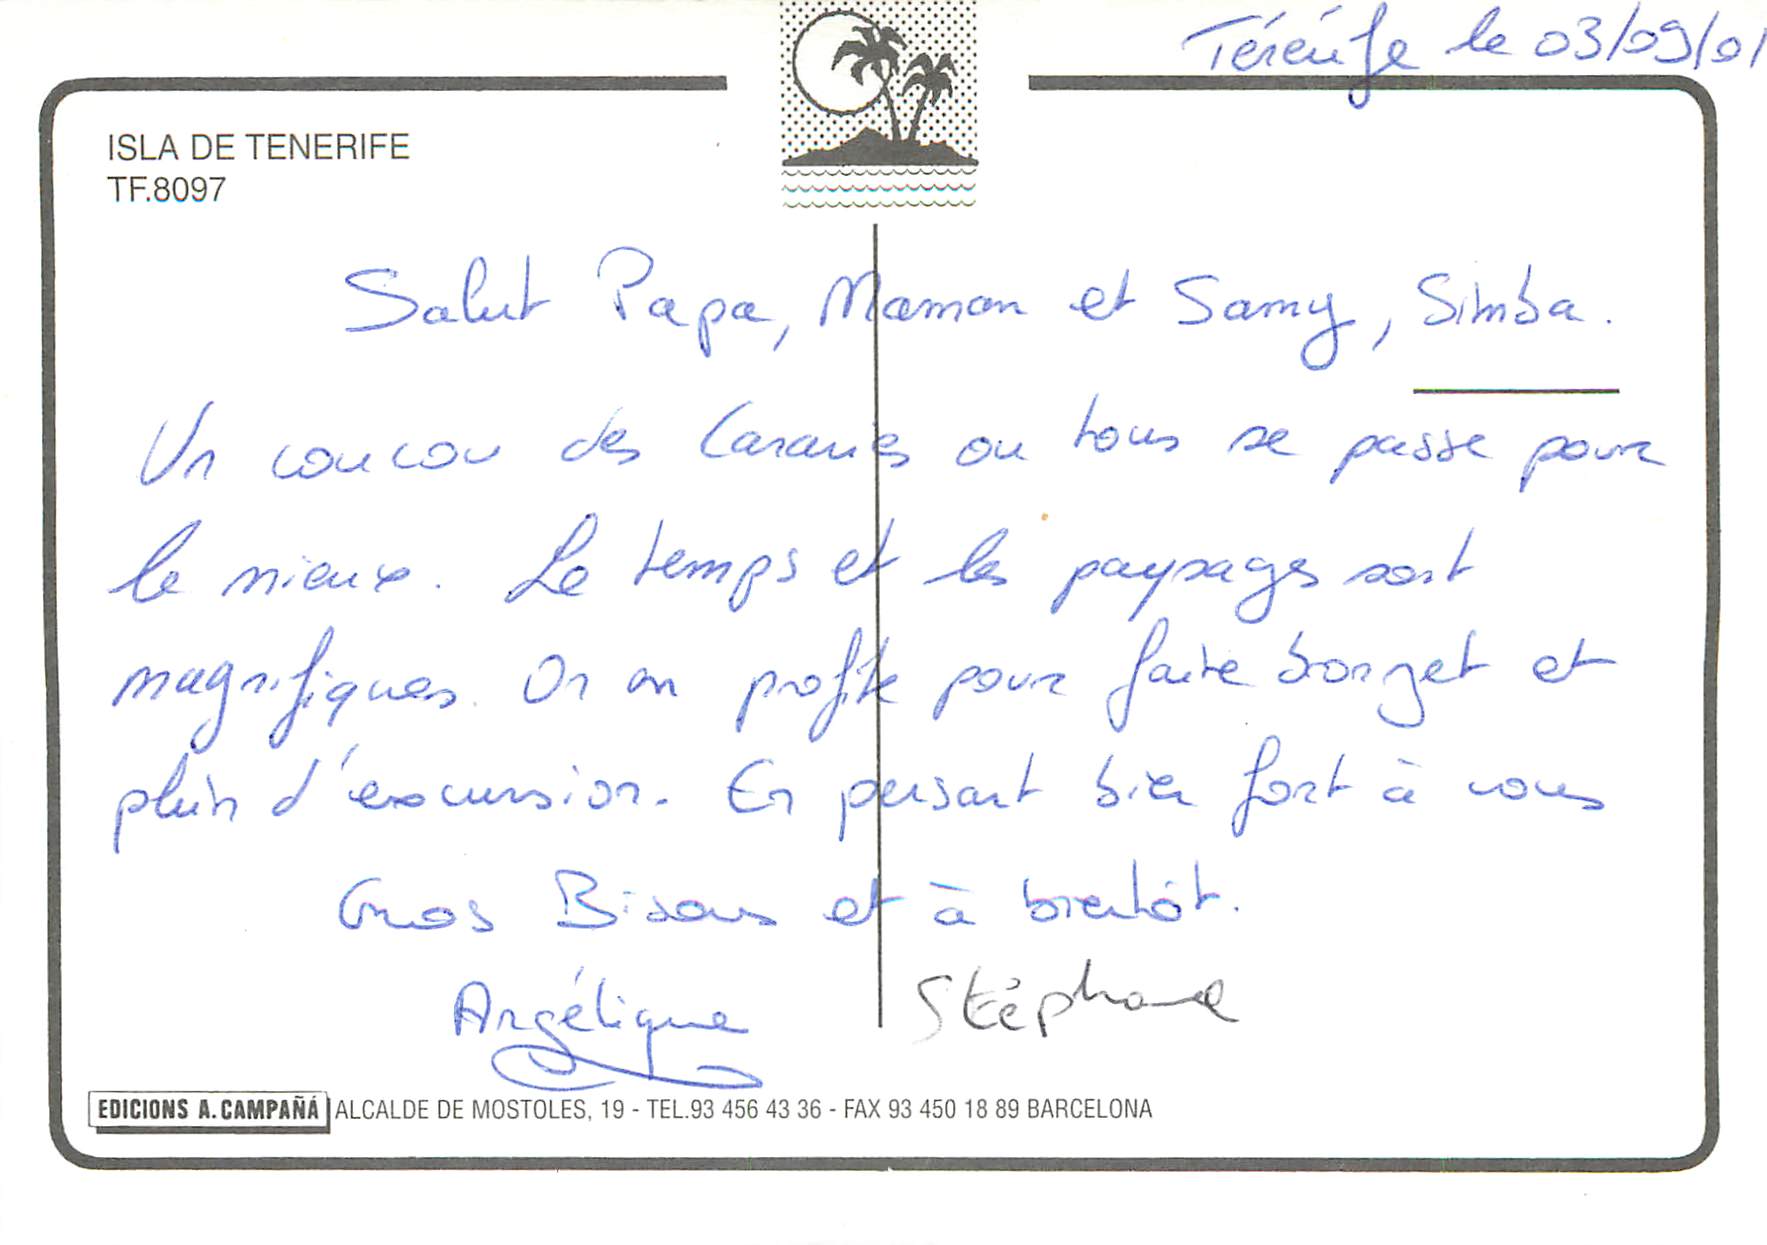 Ténérife le 03/09/01
ISLA DE TENERIFE
TF.8097
Salut Papa, Maman et Samy, Simba.
Un coucou des Canaries ou tous se passe pour
le mieux. Le temps et les paysages sont
magnifiques. On en profite pour faire bronzet et
plein d'excursion. En pensant bien fort à vous
Gros Bisous et à bientôt.
Angélique Stéphane
EDICIONS A. CAMPAÑÁ ALCALDE DE MOSTOLES, 19 - TEL.93 456 43 36 - FAX 93 450 18 89 BARCELONA